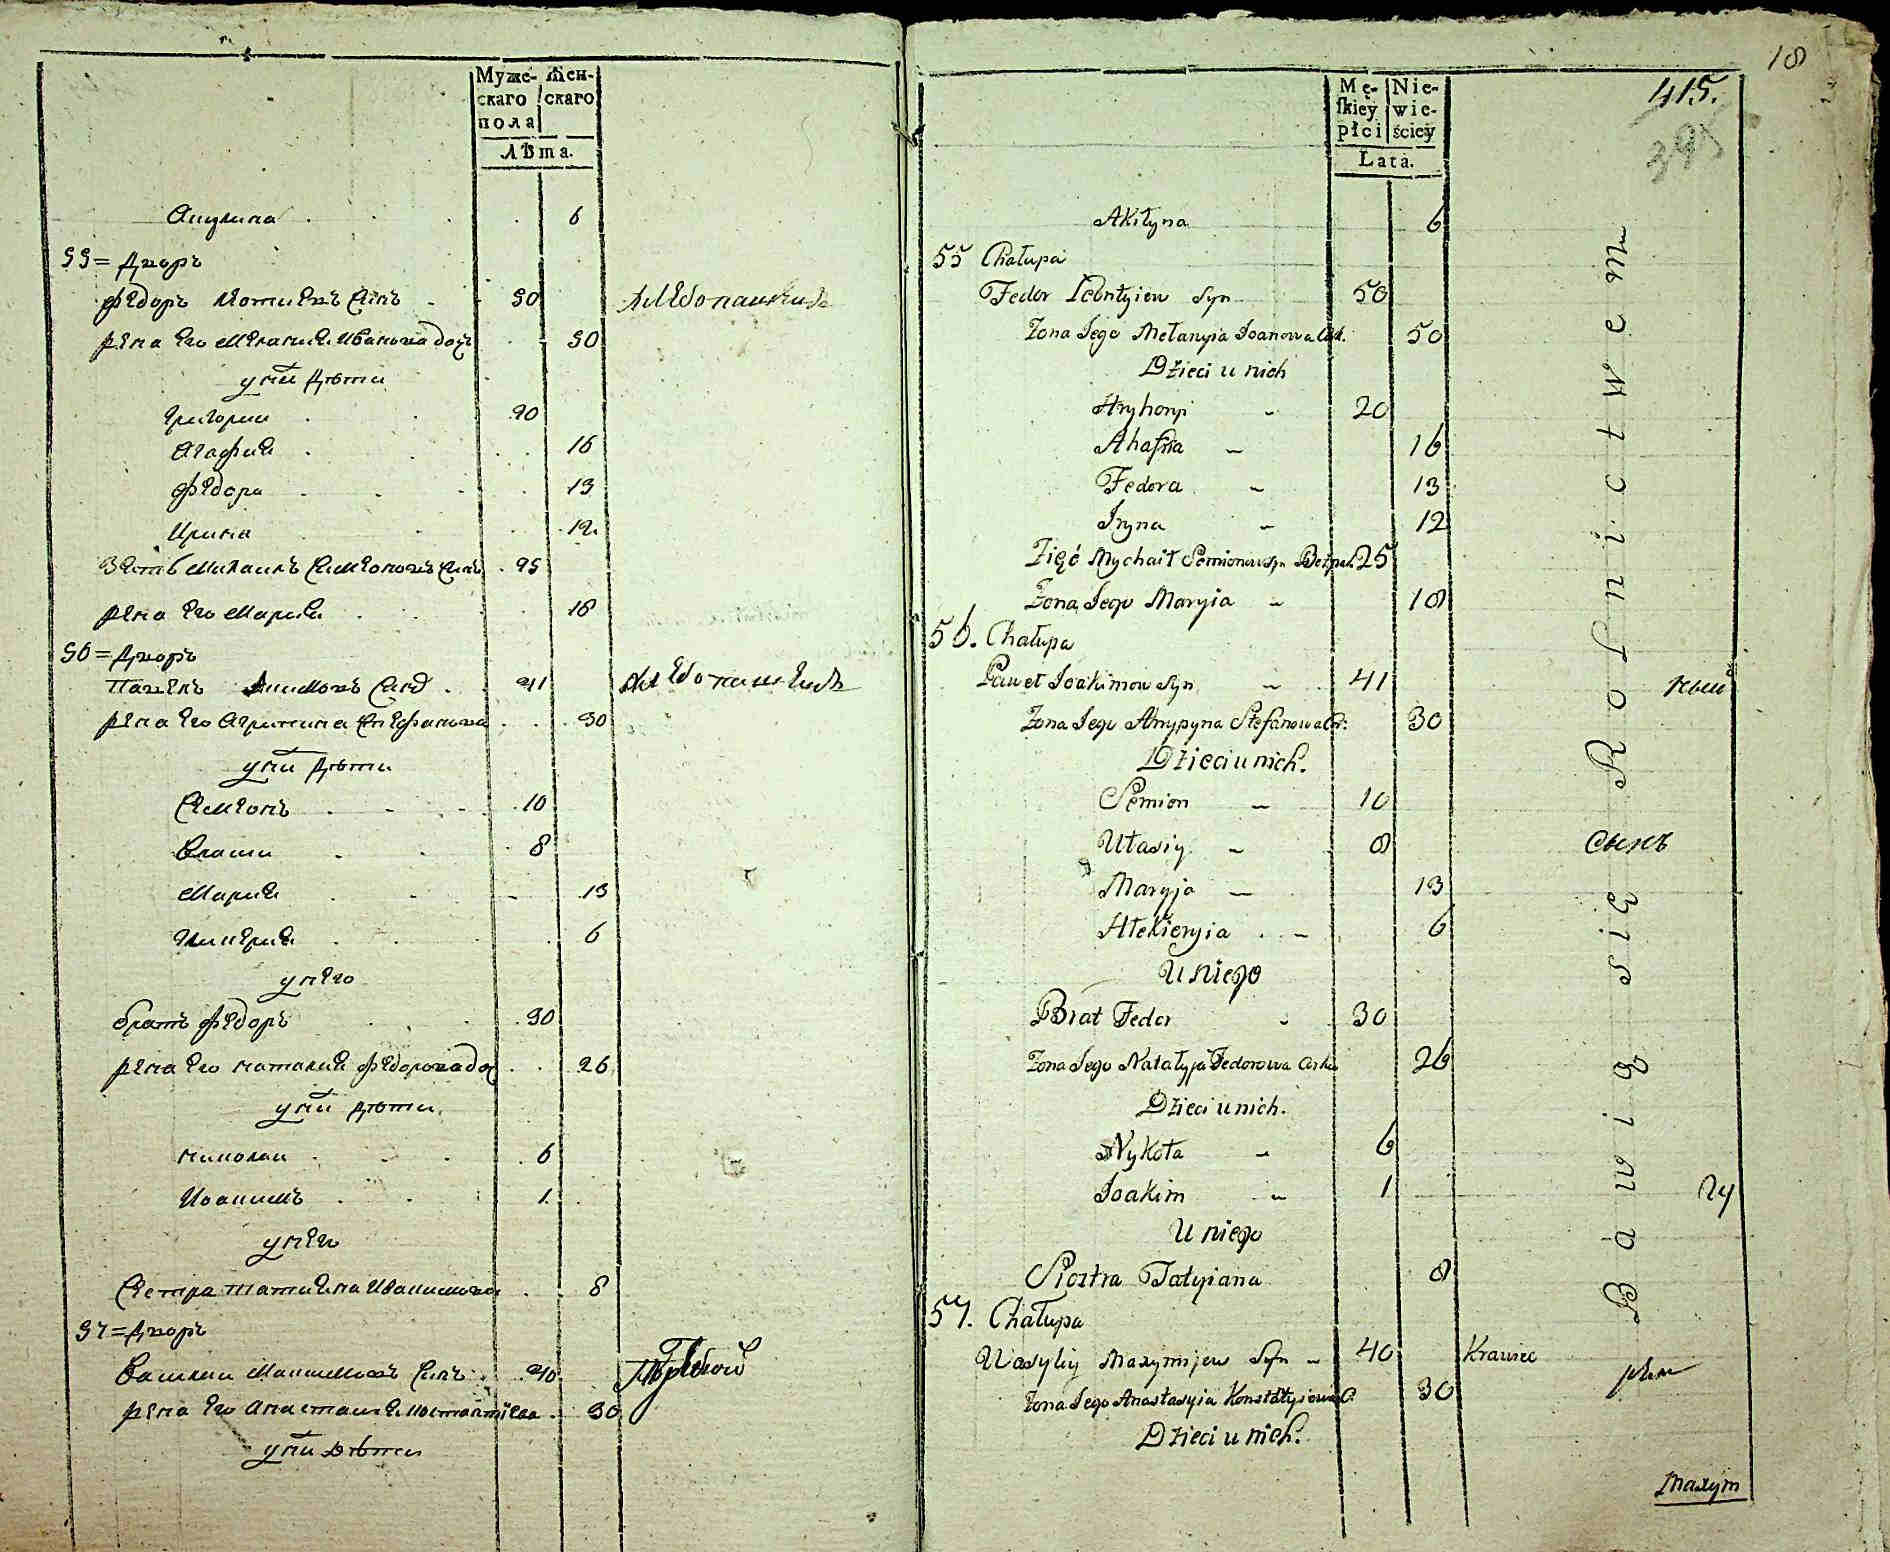 Муже-
скаго
пола
Жен-
скаго
Лѣта.
Акулина 6
55= Дворъ
Федоръ Сынъ 50 Хлебопашецъ
жена его Мелания Иванова доч 50
у них дѣти
Григории 20
Агафия 16
Федора 13
Ирина 12
Зять Михаилъ Семеновъ Сынъ 25
жена его Мария 18
56= Дворъ
Павелъ Сынъ 41 Хлебопашецъ
жена его Агрипина Стефанова 30
у них дѣти
Семионъ 10
Власии 8
Мария 13
6
у него
братъ Федоръ 30
жена его Наталия Федорова до 26
у них дѣти
Николаи 6
Иоакимъ 1
у него
Сестра Татияна 8
57= Дворъ
Василии Максимовъ Сынъ 40
жена его Анастасия 30
у них дѣти
18
Mę-
skiey
płci
Nie-
wie-
ściey
Lata.
415.
395
Akiłyna 6
55 Chałupa
Fedor Syn 50
Żona Jego Mełanyia Joanowa 50
Dzieci u nich
Hryhoryi 20
Ahafia 16
Fedora 13
Iryna 12
Zięć Mychaił Semionow Syn 25
Żona Jego Maryia 18
56. Chałupa
Paweł Joakimow Syn 41
Żona Jego Ahrypyna Stefanowa 30
Dzieci u nich.
Semion 10
Ułasiy 8
Maryja 13
Hłekieryia 6
U niego
Brat Fedor 30
Żona Jego Natałyja Fedorowa Corka 26
Dzieci u nich.
Nykoła 6
Joakim 1
U niego
Siostra Tatyiana 8
57. Chałupa
Wasyliy Maxymijew Syn 40 Krawiec
Żona Jego Anastasyia 30
Dzieci u nich.
Bawią się Rolnictwem
сынъ
Maxym